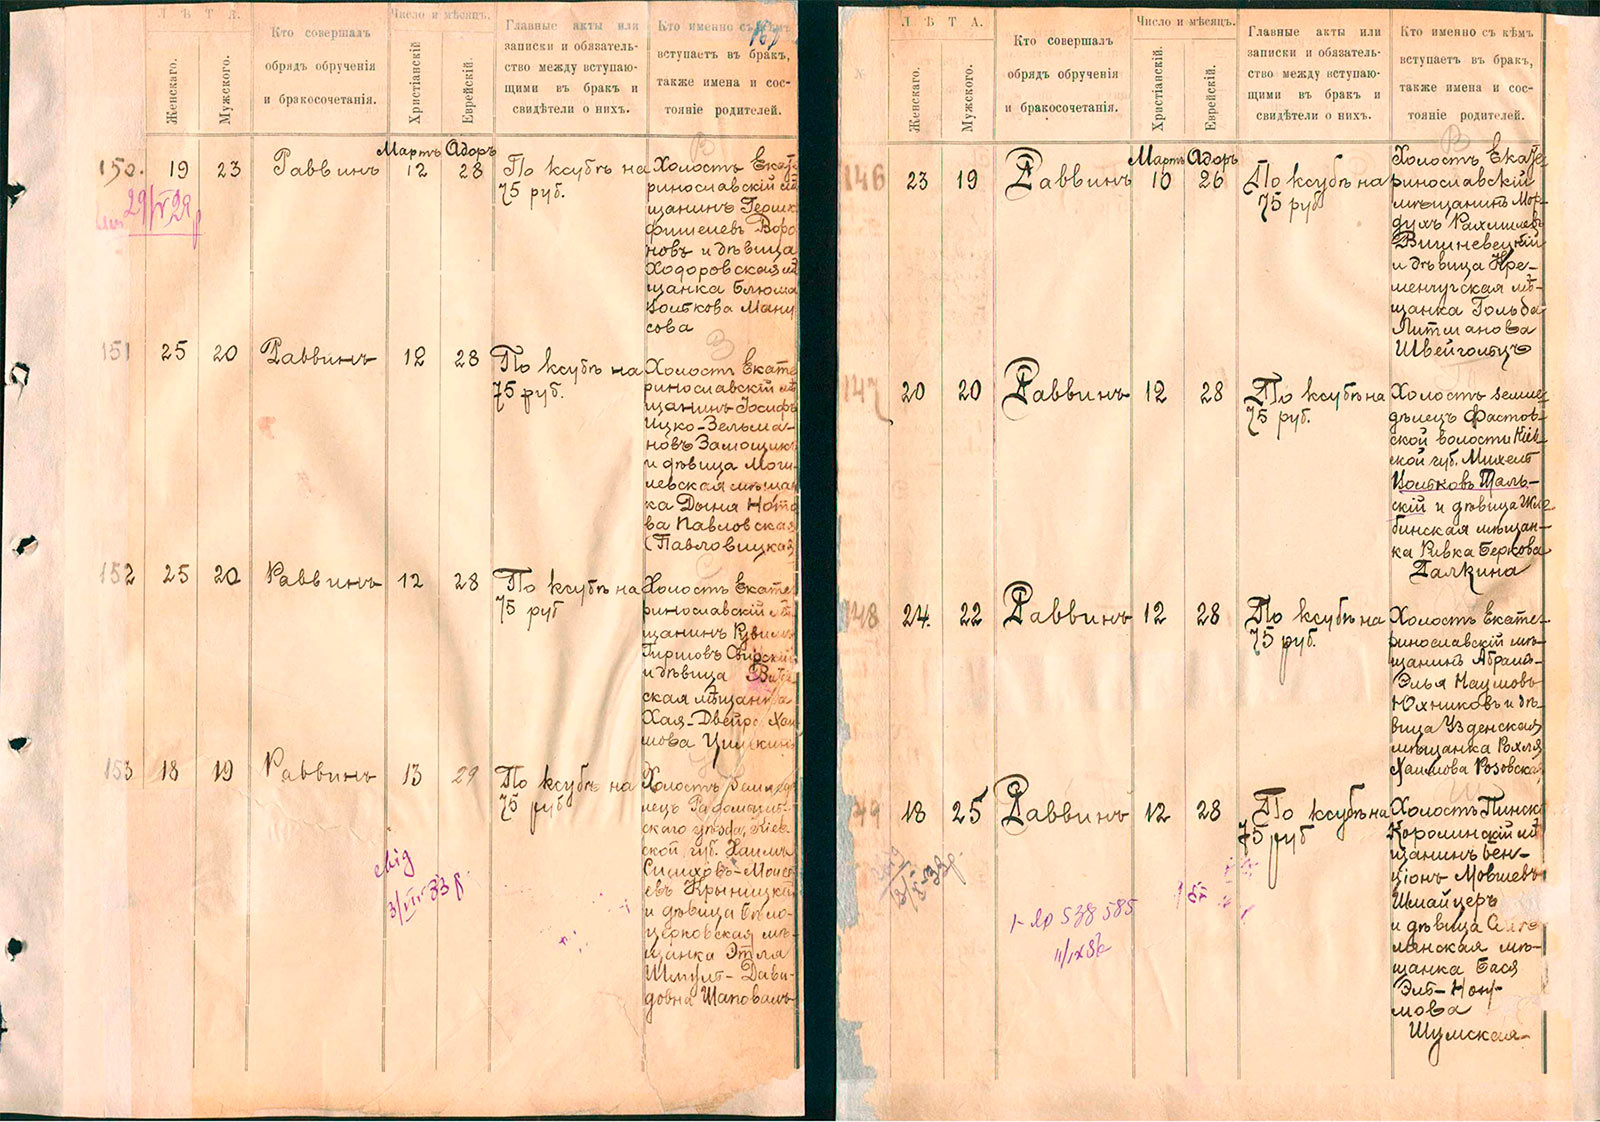 Л Ѣ Т А.
Женскаго.
Мужского.
Кто совершалъ
обрядъ обрученія
и бракосочетанія.
Число и мѣсяцъ.
Христіанскій
Еврейскій.
Главные акты или
записки и обязатель-
ство между вступаю-
щими въ бракъ и
свидѣтели о нихъ.
Кто именно съ кѣмъ
вступаетъ въ бракъ,
также имена и сос-
тояніе родителей.
Мартъ Адоръ
150. 19 23 Раввинъ 12 28
По ксубѣ на
75 руб.
Холостъ Екате
ринославскій мѣ
щанинъ Герш
фишелевъ Воро
новъ и дѣвица
Ходоровская мѣ
щанка Блюма
Волькова Ману
сова
151 25 20 Раввинъ 12 28
По ксубѣ на
75 руб.
Холостъ Екате
ринославскій мѣ
щанинъ Іосифъ
Ицко-Зельма-
новъ Замощик
и дѣвица Моги
левская мѣщан
ка Дыня Нота
ва Павловская
(Павловицкая)
152 25 20 Раввинъ 12 28
По ксубѣ на
75 руб
Холостъ Екате
ринославскій мѣ
щанинъ Рувим
Гиршовъ Свирскій
и дѣвица
ская мѣщанка
Хая-Двейра Хаи
мова Цимкинъ
153 18 19 Раввинъ 13 29
По ксубѣ на
75 руб
Холостъ
скаго уѣзда, Кіев
ской губ. Хаимъ
евъ Крыницкій
и дѣвица Бѣло-
церковская мѣ
щанка Этля
Шмулъ-Дави-
довна Шаповалъ
Л Ѣ Т А.
Женскаго.
Мужского.
Кто совершалъ
обрядъ обрученія
и бракосочетанія.
Число и мѣсяцъ.
Христіанскій
Еврейскій.
Главные акты или
записки и обязатель-
ство между вступаю-
щими въ бракъ и
свидѣтели о нихъ.
Кто именно съ кѣмъ
вступаетъ въ бракъ,
также имена и сос-
тояніе родителей.
Мартъ Адоръ
146 23 19 Раввинъ 10 26
По ксубѣ на
75 руб
Холостъ Екате
ринославскій
мѣщанинъ Мор-
духъ Рахмилевъ
Вишневецкій
и дѣвица Кре-
менчугская мѣ-
щанка Гольда
Литманова
Швейгольцъ
147 20 20 Раввинъ 12 28
По ксубѣ на
75 руб.
Холостъ земле
дѣлецъ Фастов-
ской волости Кіев
ской губ. Михель
Вольковъ Таль-
скій и дѣвица
бинская мѣщан-
ка Ривка Беркова
Галкина
148 24. 22 Раввинъ 12 28
По ксубѣ на
75 руб.
Холостъ Екате-
ринославскій мѣ-
щанинъ Абрамъ-
Элья Наумовъ
Юхниковъ и дѣ-
вица Узденская
мѣщанка Рохля
Хаимова Розовская
149 18 25 Раввинъ 12 28
По ксубѣ на
75 руб
Холостъ Пинско
Королинскій мѣ
щанинъ Бен-
ціонъ Мовшевъ
Шмайцеръ
и дѣвица
манская мѣ-
щанка Бася
мова
Шумская